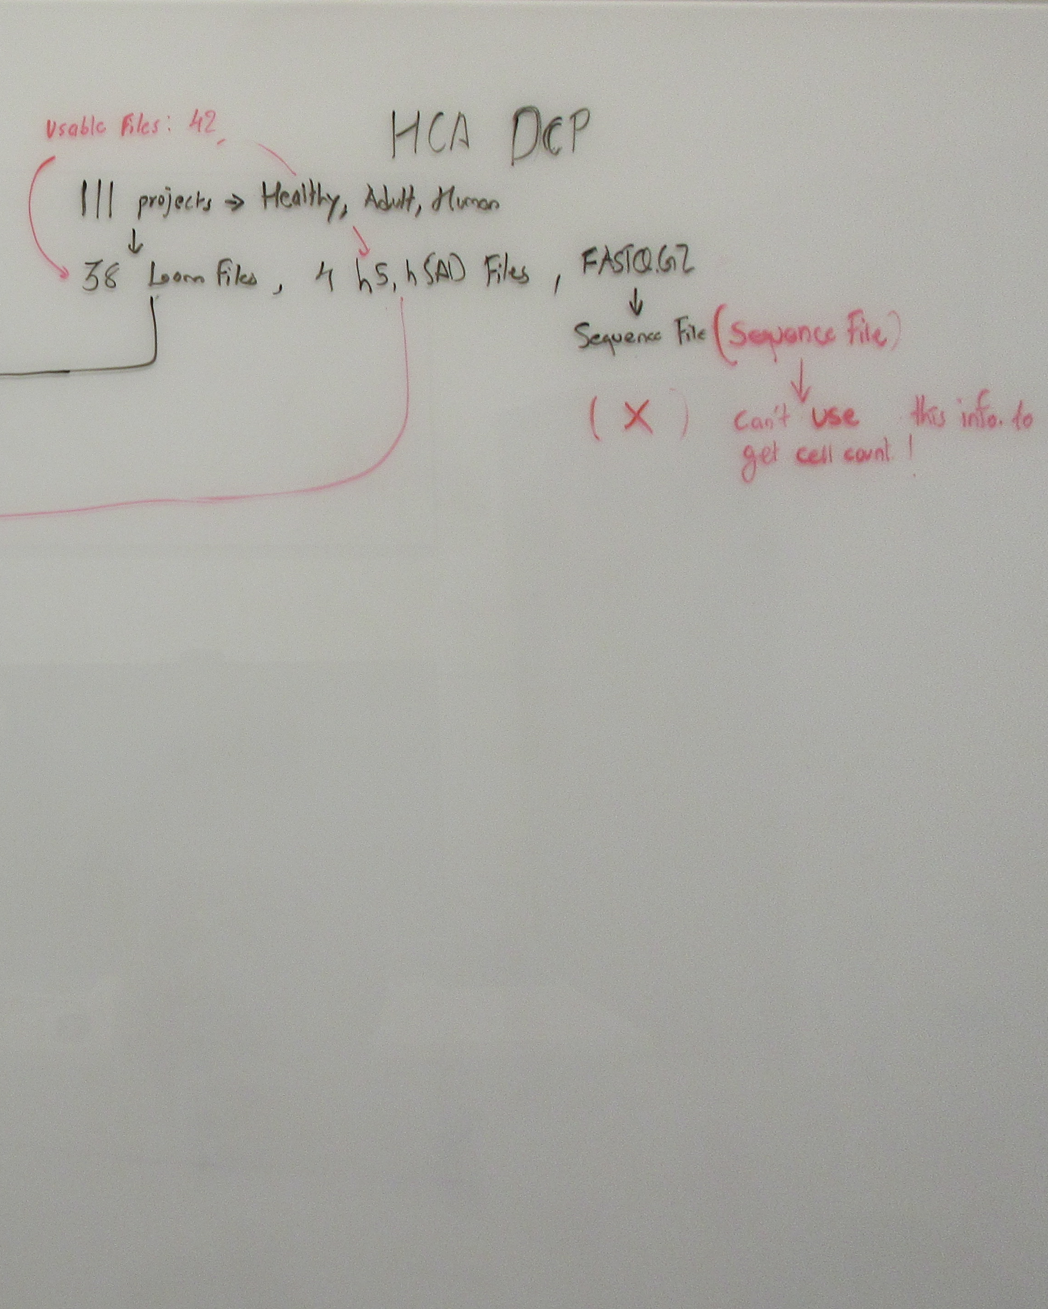 HCA DCP
Usable Files: 42
111 projects → Healthy, Adult, Human
38 Loom Files, 4 h5, h5AD Files, FASTQ.GZ
Sequence File (Sequence File)
(X) Can't use this info. to
get cell count!